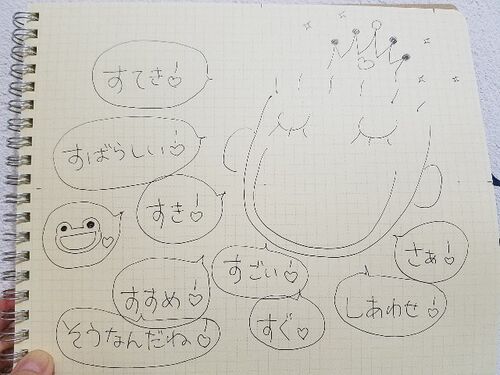 すてき!♡
すばらしい!♡
すき!♡
すごい!♡
さぁ!♡
すすめ!♡
すぐ!♡
しあわせ!♡
そうなんだね!♡